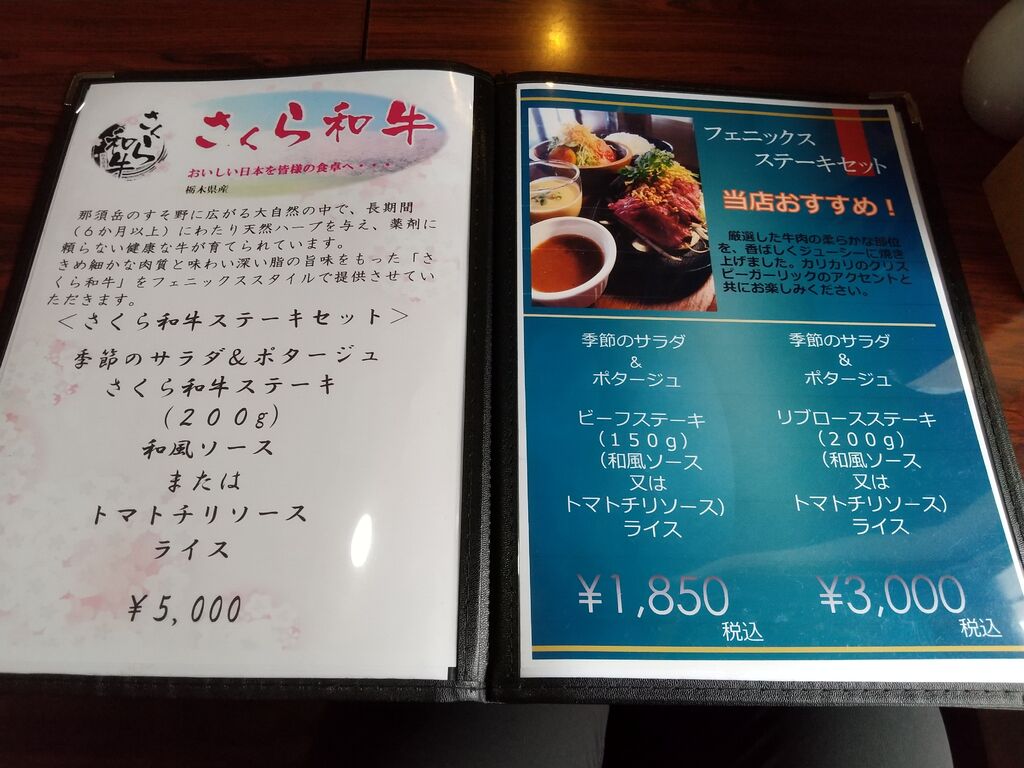 さくら
和牛
さくら和牛
おいしい日本を皆様の食卓へ・・・
栃木県産
那須岳のすそ野に広がる大自然の中で、長期間
（６か月以上）にわたり天然ハーブを与え、薬剤に
頼らない健康な牛が育てられています。
きめ細かな肉質と味わい深い脂の旨味をもった「さ
くら和牛」をフェニックススタイルで提供させてい
ただきます。
＜さくら和牛ステーキセット＞
季節のサラダ＆ポタージュ
さくら和牛ステーキ
（２００g）
和風ソース
または
トマトチリソース
ライス
￥5,000
フェニックス
ステーキセット
当店おすすめ！
厳選した牛肉の柔らかな部位
を、香ばしくジューシーに焼き
上げました。カリカリのクリス
ピーガーリックのアクセントと
共にお楽しみください。
季節のサラダ
＆
ポタージュ
ビーフステーキ
（１５０g）
（和風ソース
又は
トマトチリソース）
ライス
¥1,850
税込
季節のサラダ
＆
ポタージュ
リブロースステーキ
（２００g）
（和風ソース
又は
トマトチリソース）
ライス
¥3,000
税込